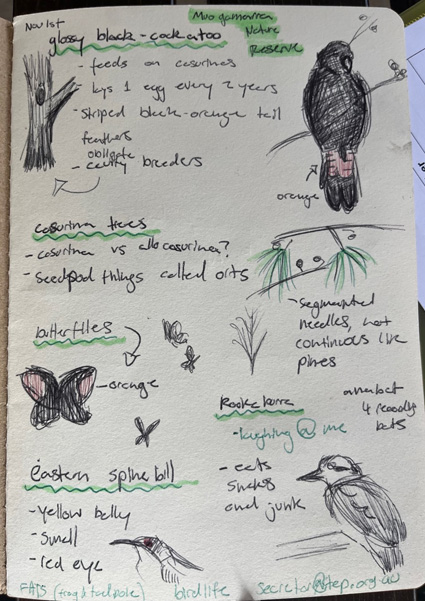 Nov 1st
Nature
Reserve
glossy black-cockatoo
- feeds on casurinas
- lays 1 egg every 2 years
- striped black-orange tail
feathers
obligate
- cavity breeders
orange
casurina trees
- casurina vs allocasurina?
- seedpod things called orbs
- segmented
needles, not
continuous like
pines
butterflies
- orange
Kookaburra
- laughing @ me
- eats
snakes
and junk
4 people
eastern spinebill
- yellow belly
- small
- red eye
FATS (frog & tadpole)
birdlife